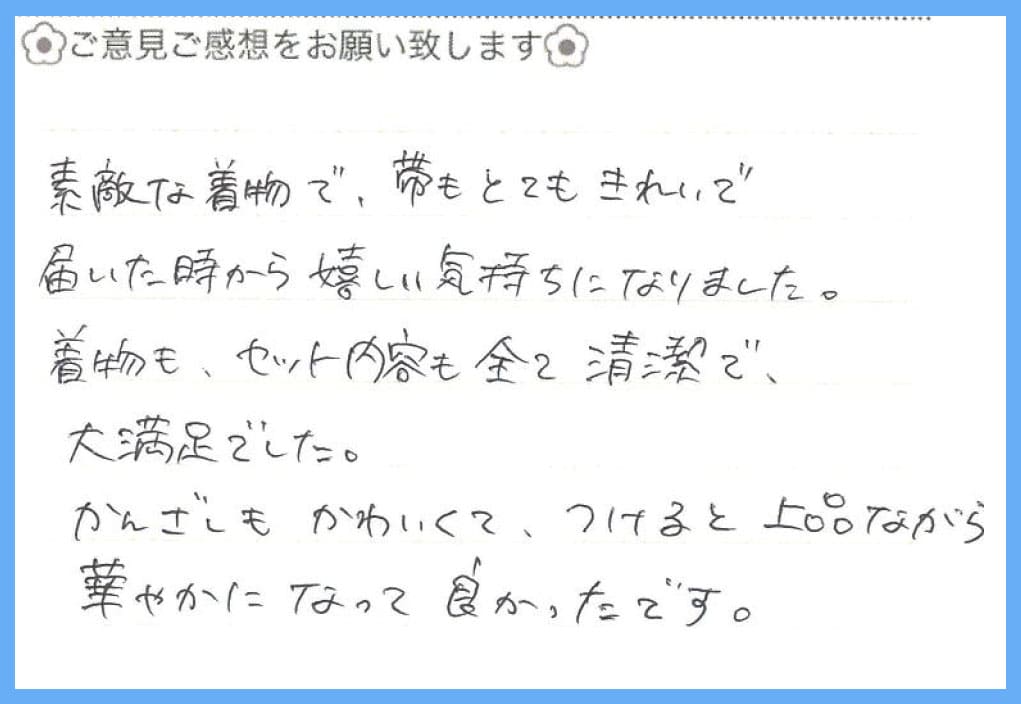 ご意見ご感想をお願い致します
素敵な着物で、帯もとてもきれいで
届いた時から嬉しい気持ちになりました。
着物も、セット内容も全て清潔で、
大満足でした。
かんざしもかわいくて、つけると上品ながら
華やかになって良かったです。